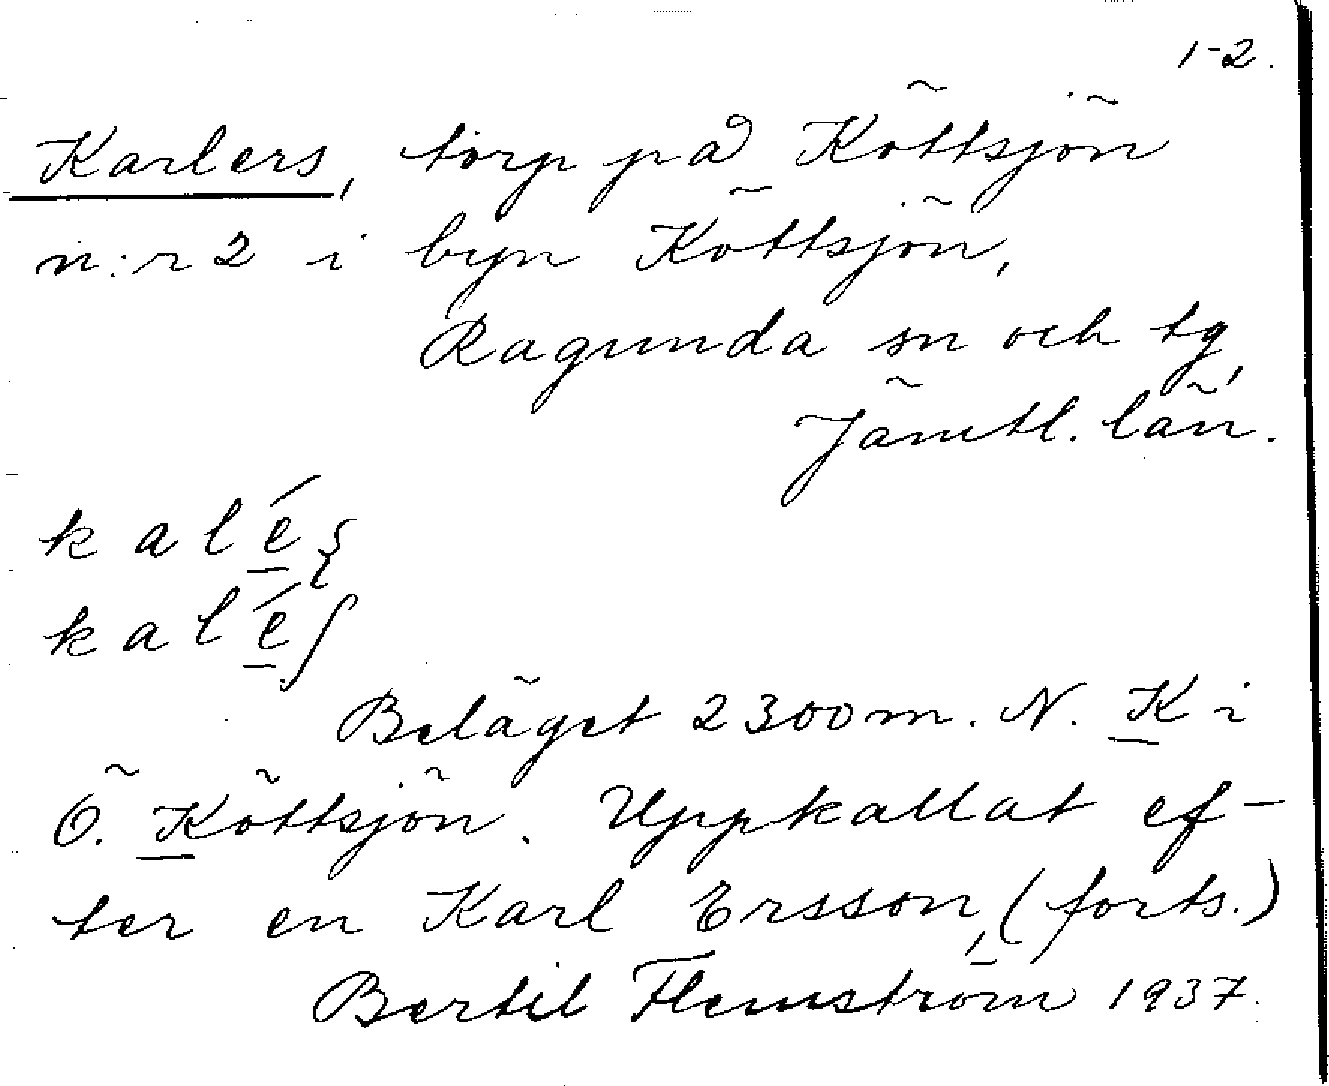 1-2.
Karlers, torp på Köttsjön
n:r 2 i byn Köttsjön,
Ragunda sn och tg,
Jämtl. län.
kalé̱ʂ
kalé̱ʃ
Beläget 2300 m. N. K i
Ö. Köttsjön. Uppkallat ef-
ter en Karl Ersson, (forts.)
Bertil Flemström 1937.